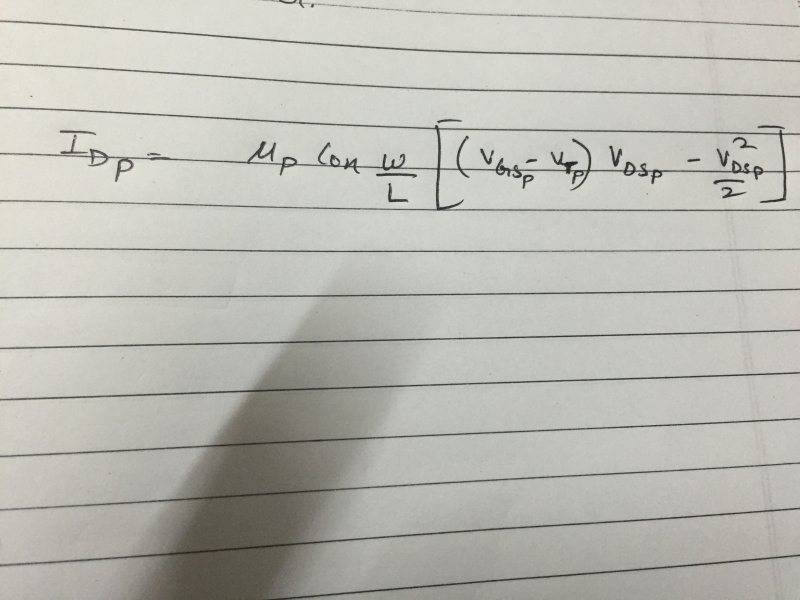 I_{DP} = μ_P Cox \frac{W}{L} [ (V_{GS_P} - V_{T_P}) V_{DS_P} - \frac{V_{DS_P}^2}{2} ]